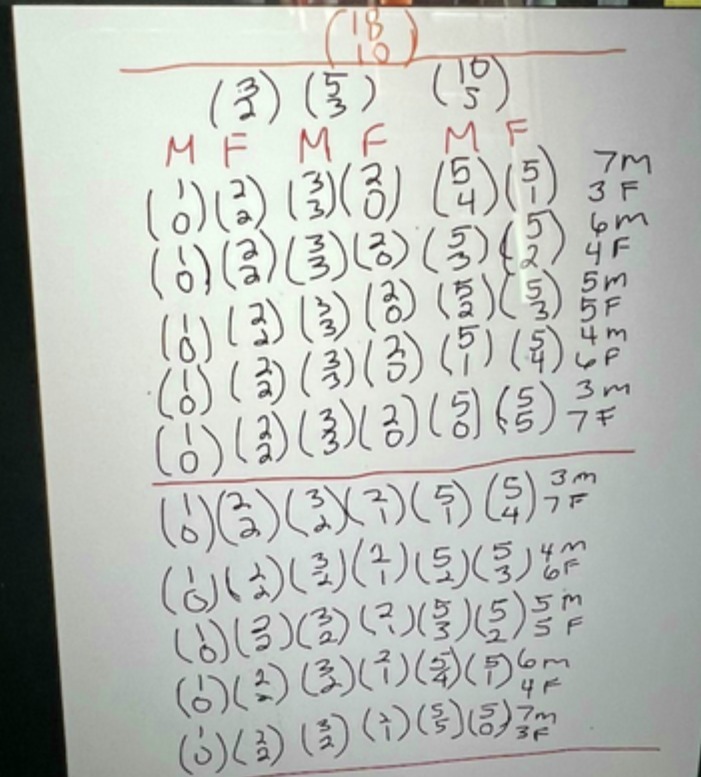 (18 10)
(3 2) (5 3) (10 5)
M F M F M F
(1 0) (2 2) (3 3) (2 0) (5 4) (5 1) 7M 3F
(1 0) (2 2) (3 3) (2 0) (5 3) (5 2) 6m 4F
(1 0) (2 2) (3 3) (2 0) (5 2) (5 3) 5m 5F
(1 0) (2 2) (3 3) (2 0) (5 1) (5 4) 4m 6F
(1 0) (2 2) (3 3) (2 0) (5 0) (5 5) 3m 7F
(1 0) (2 2) (3 2) (2 1) (5 1) (5 4) 3m 7F
(1 0) (2 2) (3 2) (2 1) (5 2) (5 3) 4m 6F
(1 0) (2 2) (3 2) (2 1) (5 3) (5 2) 5m 5F
(1 0) (2 2) (3 2) (2 1) (5 4) (5 1) 6m 4F
(1 0) (2 2) (3 2) (2 1) (5 5) (5 0) 7m 3F